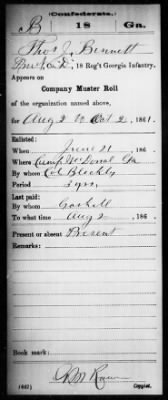 Confederate.
B 18 Ga.
Thos J. Bennett
Pvt, Co. D, 18 Reg't Georgia Infantry.
Appears on
Company Muster Roll
of the organization named above,
for Aug 2 to Oct 2, 1861.
Enlisted:
When June 21, 186 .
Where Camp McDonald Ga
By whom Col Bleckly
Period 3 yrs.
Last paid:
By whom Gaskill
To what time Aug 2, 186 .
Present or absent Present
Remarks:
Book mark:
(642)
Copyist.